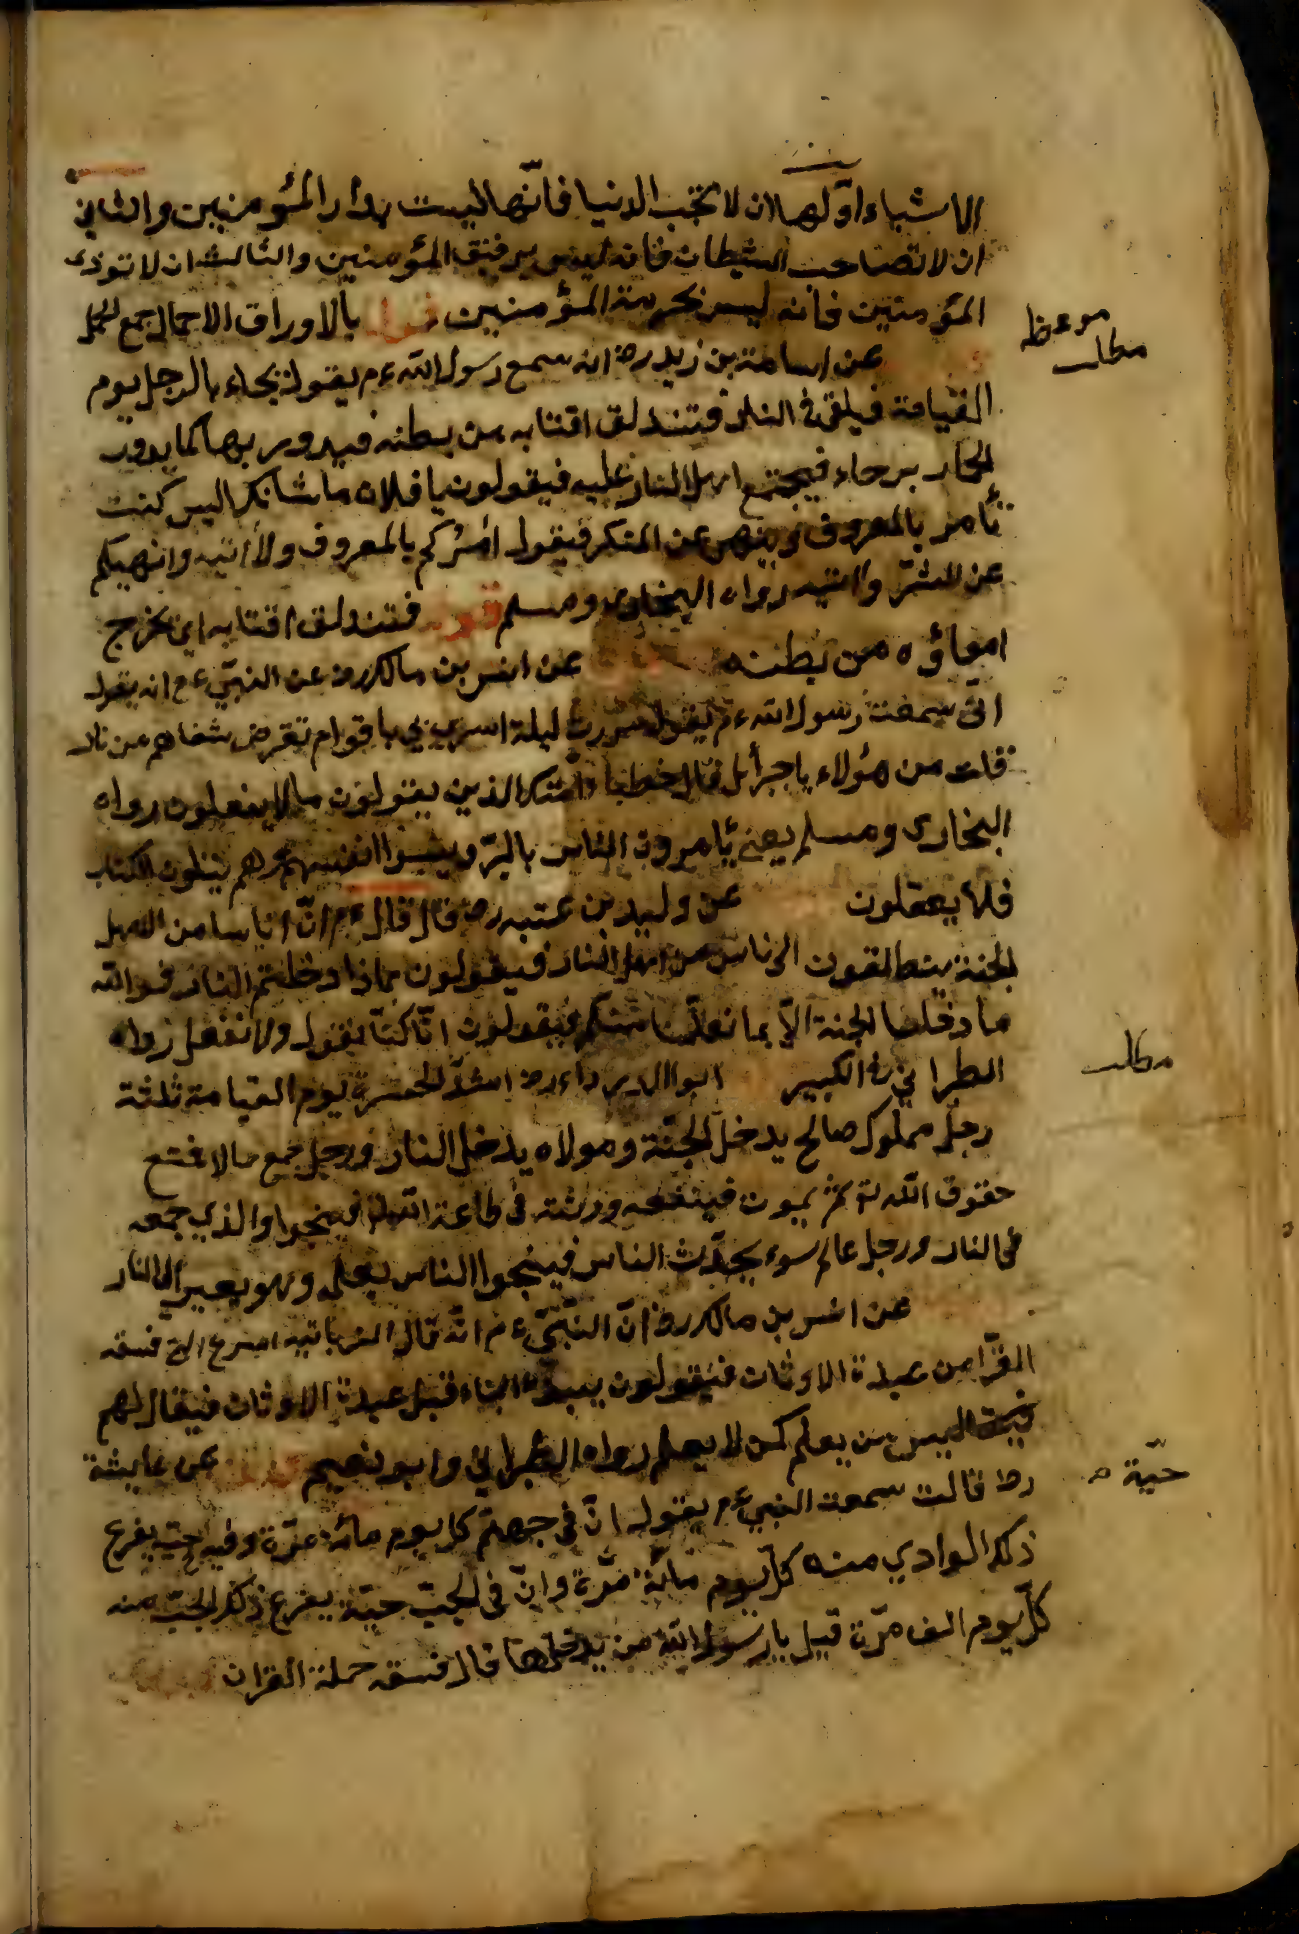 الاشياء اوّلها ان لا تحب الدنيا فانّها ليست بدار المؤمنين والثاني
ان لا تصاحب الشيطان فانه ليس برفيق المؤمنين والثالث ان لا توذى
المؤمنين فانه ليس بحرمة المؤمنين قوله بالاوراق الاحمال جمع الحمل
عن اسامة بن زيد رض انه سمع رسول الله ءم يقول يجاء بالرجل يوم
القيامة فيلقى في النار فتندلق اقتابه من بطنه فيدور بها كما يدور
الحمار برحاء فيجتمع اهل النار عليه فيقولون يا فلان ما شانك اليس كنت
تأمر بالمعروف وينهى عن المنكر فيقول امركم بالمعروف ولا أتيه وانهيكم
عن الشرّ واتيه رواه البخارى ومسلم قوله فتندلق اقتابه اى يخرج
امعاؤه من بطنه عن انس بن مالك رض عن النبيّ ءم انه يقول
انى سمعت رسول الله ءم يقول مررت ليلة اسري بي باقوام تقرض شفاهم من نار
قلت من هؤلاء يا جبرأيل قال خطباء امّتك الذين يقولون ما لا يفعلون رواه
البخارى ومسلم يعنى يأمرون الناس بالبرّ وينسوا انفسهم وهم يتلون الكتاب
فلا يعقلون عن وليد بن عتبه رض قال قال ءم انّ اناسا من اهل
الجنة ينطلقون الى ناس من اهل النار فيقولون بماذا دخلتم النار فوالله
ما دخلنا الجنة الاّ بما تعلّمنا منكم فيقولون انّا كنّا نقول ولا نفعل رواه
الطبراني في الكبير ابو الدرداء رض اشدّ الحسرة يوم القيامة ثلثة
رجل مملوك صالح يدخل الجنّة ومولاه يدخل النار ورجل جمع مالا فمنع
حقوق الله تع ثم يموت فينفقه ورثته في طاعة الله فينجوا والذي جمعه
في النار ورجل عالم سوء يحدّث الناس فينجوا الناس بعلمه وهو يصير الى النار
عن انس بن مالك رض انّ النبّيّ ءم انّه قال الزبانية اسرع الى فسقه
القرّا من عبدة الاوثان فيقولون يبدؤ بنا قبل عبدة الاوثان فيقال لهم
ليس من يعلم كمن لا يعلم رواه الطبراني وابو نعيم عن عايشة
رض قالت سمعت النبي ءم يقول انّ في جهنّم كل يوم مائة مرّة وفيه جبّ يفزع
ذلك الوادي منه كلّ يوم مائة مرّة وانّ في الجبّ حيّة يفزع ذلك الجبّ منه
كلّ يوم الف مرّة قيل يا رسول الله من يدخلها قال فسقه حملة القران
موعظه
مطلب
مطلب
حيّة